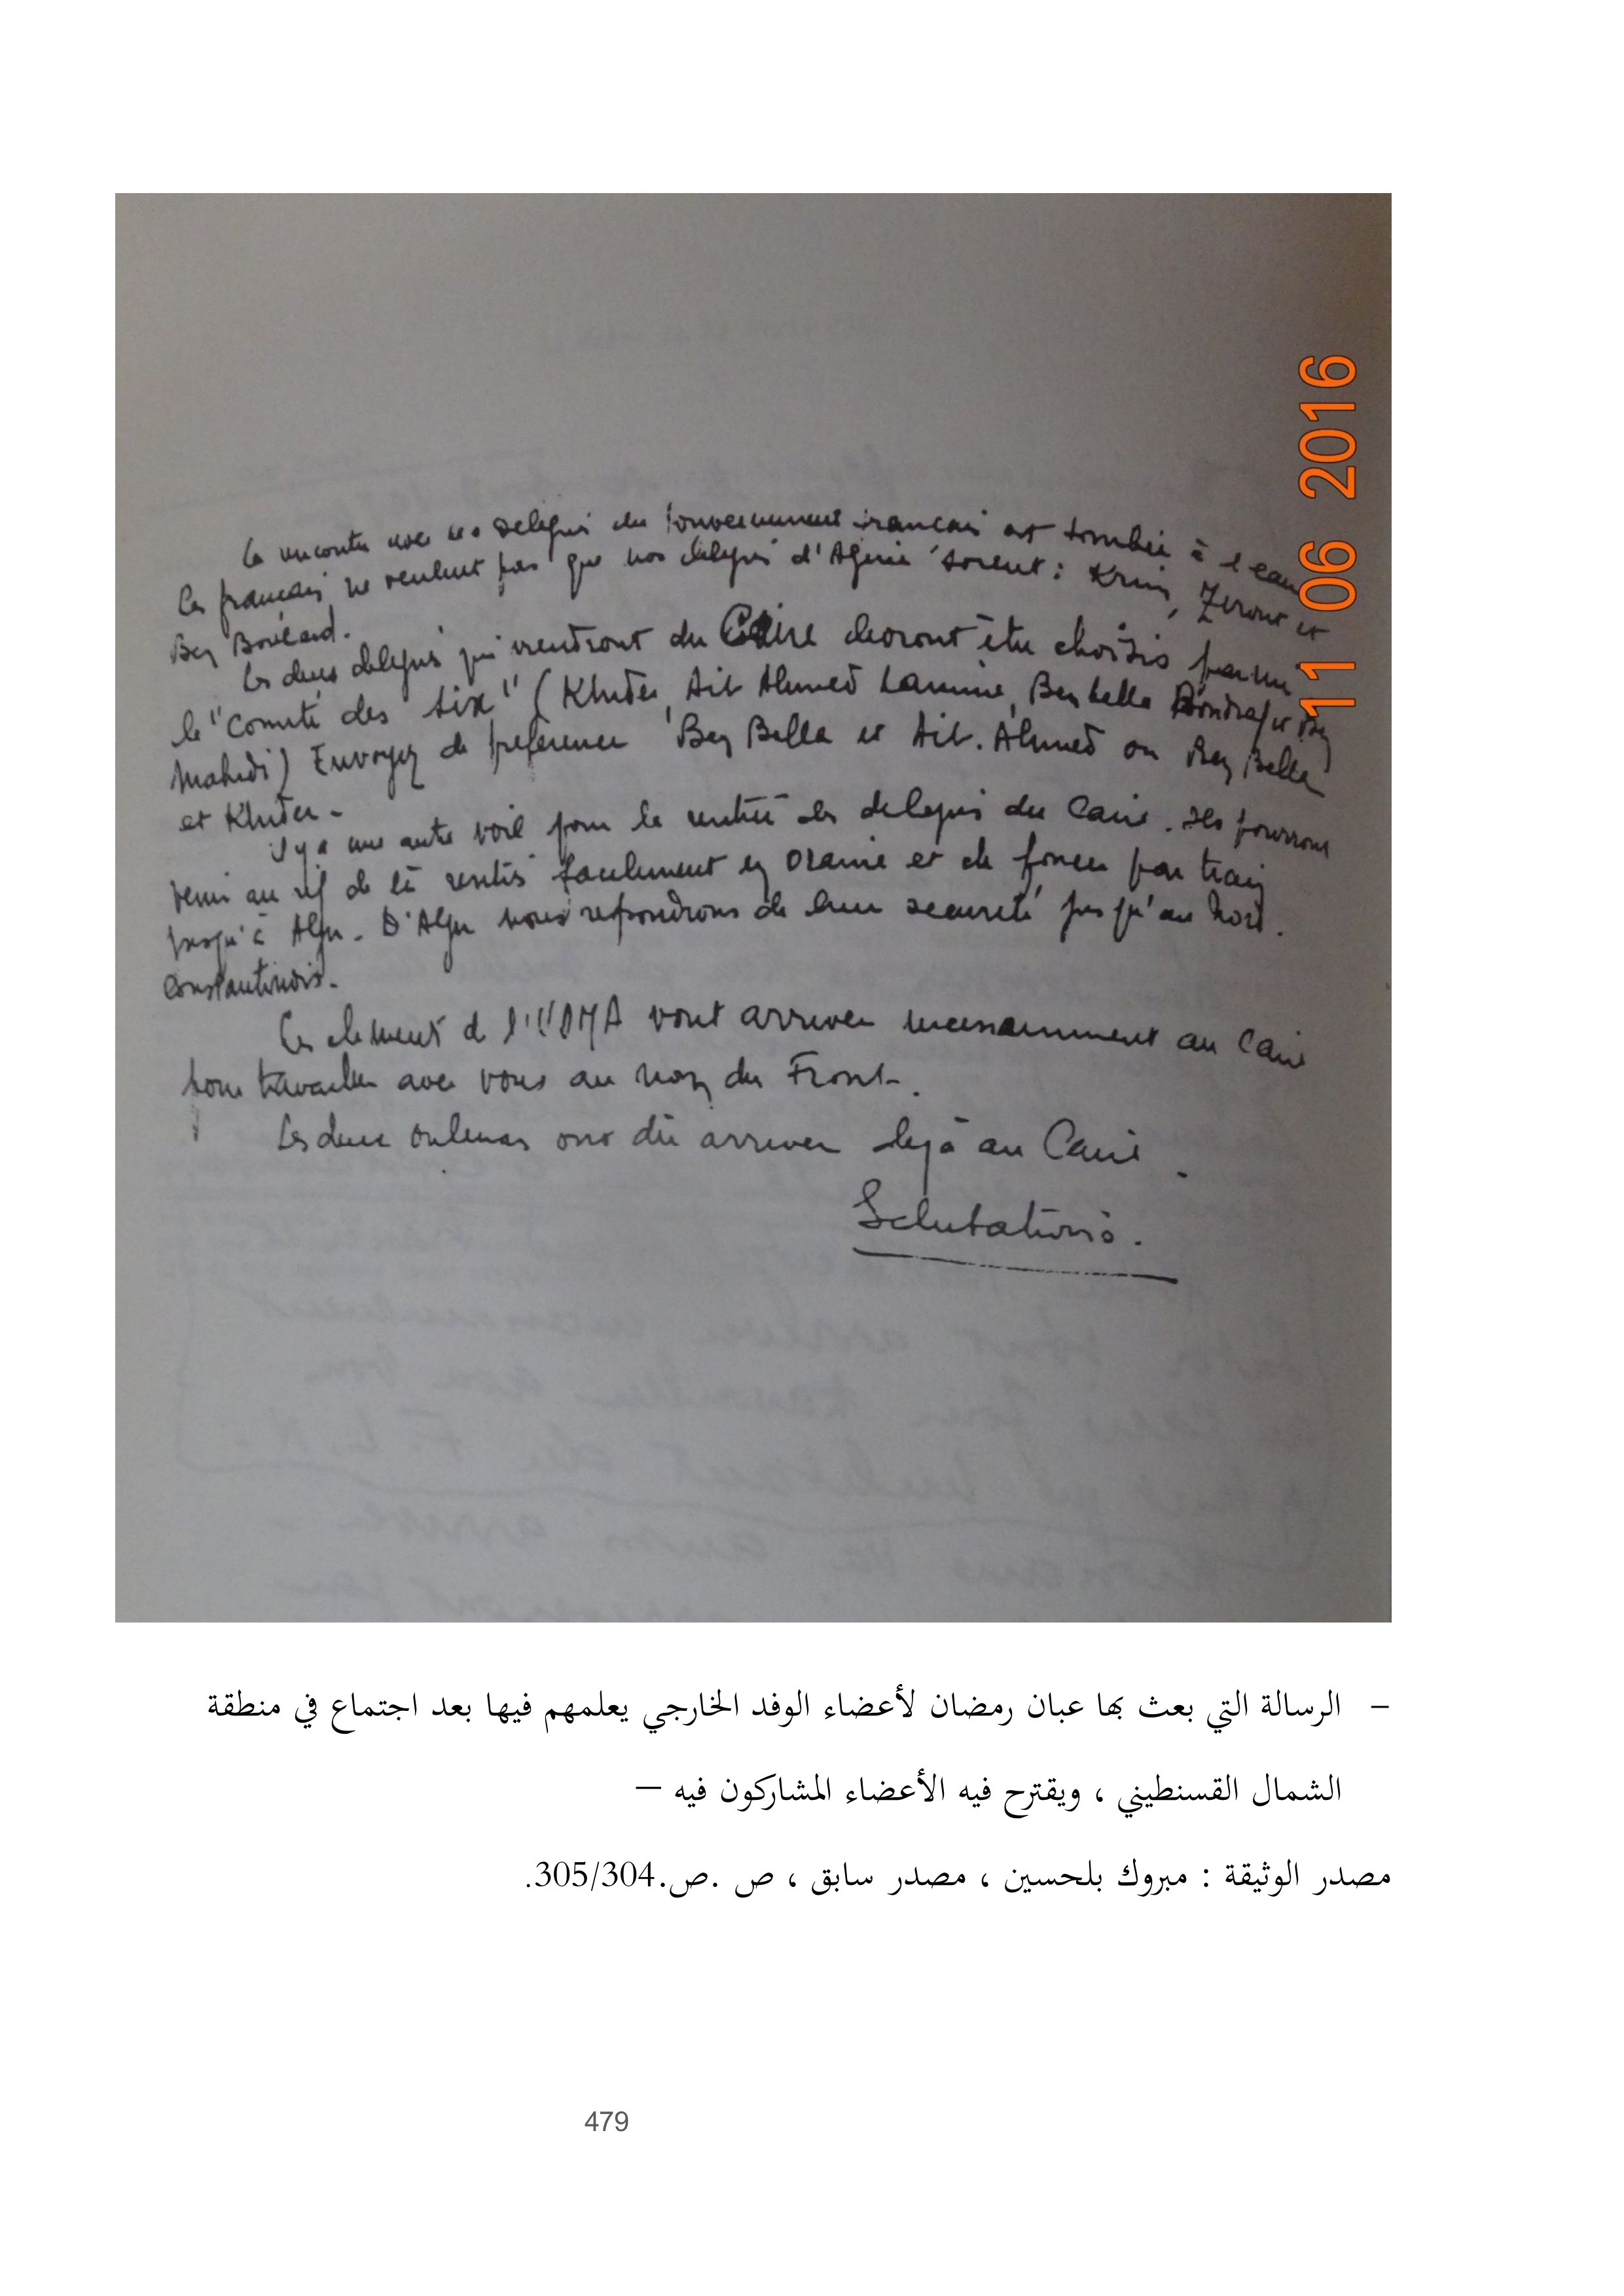 La rencontre avec les délégués du Gouvernement français est tombée à l'eau
Les français ne veulent pas que nos délégués d'Algérie soient : Krim, Zirout et
Ben Boulaid.
Les deux délégués qui viendront du Caire devront être choisis parmi
le "Comité des Six" (Khider, Ait Ahmed Lamine, Ben bella Boudiaf et Ben
Mahidi) Envoyez de preference Ben Bella et Ait. Ahmed ou Ben Bella
et Khider -
Il y a une autre voie pour la rentrée des délégués du Caire. Ils pourront
venir au rif de là rentrés facilement en Oranie et de foncer par train
jusqu'à Alger. D'Alger nous repondrons de leur securité jusqu'au Nord.
Constantinois.
Les element de l'UDMA vont arriver incessamment au Caire
pour travailler avec vous au nom du Front.
Les deux oulemas ont dû arriver dejà au Caire.
Salutations.
11 06 2016
– الرسالة التي بعث بها عبان رمضان لأعضاء الوفد الخارجي يعلمهم فيها بعد اجتماع في منطقة
الشمال القسنطيني ، ويقترح فيه الأعضاء المشاركون فيه –
مصدر الوثيقة : مبروك بلحسين ، مصدر سابق ، ص .ص.305/304.
479